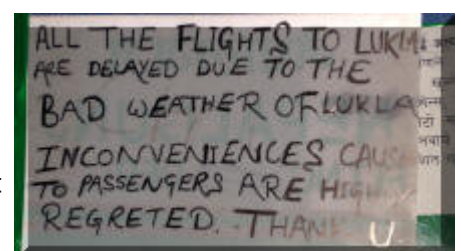 ALL THE FLIGHTS TO LUKLA
ARE DELAYED DUE TO THE
BAD WEATHER OF LUKLA
INCONVENIENCES CAUSE
TO PASSENGERS ARE HIGHLY
REGRETED. THANK U